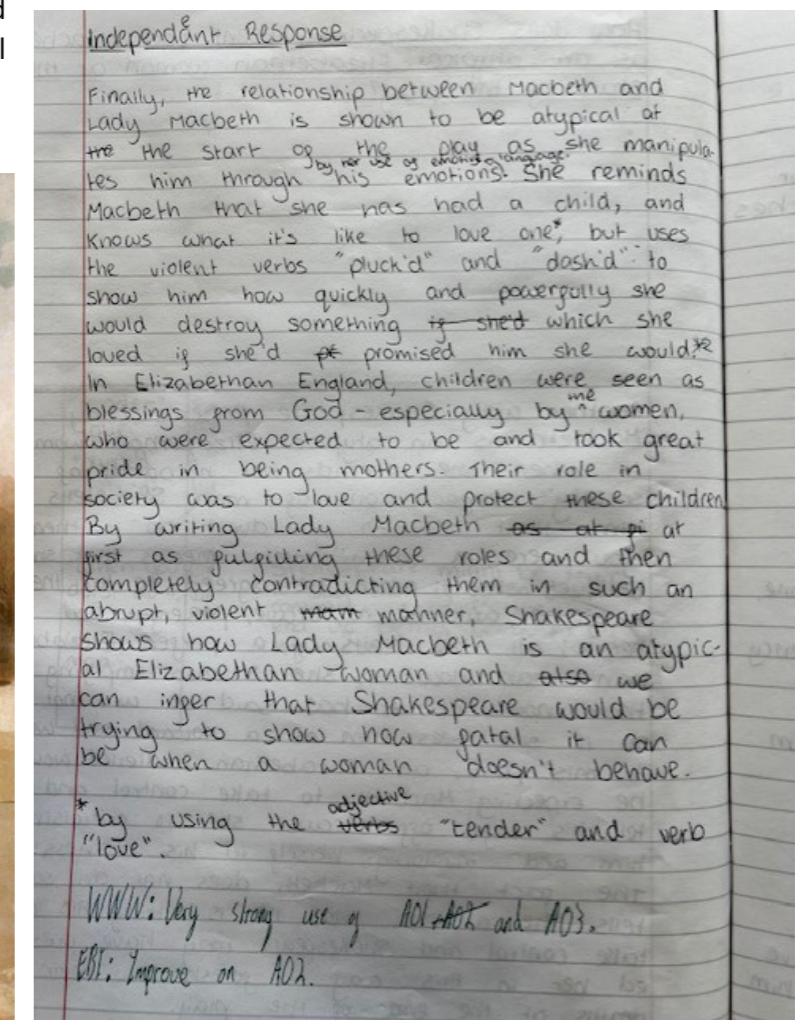 d
l
Independant Response
e
Finally, the relationship between Macbeth and
Lady Macbeth is shown to be atypical at
the the start of the play as she manipula-
by her use of emotive language.
tes him through his emotions. She reminds
Macbeth that she has had a child, and
knows what it's like to love one*, but uses
the violent verbs "pluck'd" and "dash'd" to
show him how quickly and powerfully she
would destroy something if she'd which she
loved if she'd promised him she would.*2
In Elizabethan England, children were seen as
blessings from God - especially by ^ women,
me
who were expected to be and took great
pride in being mothers. Their role in
society was to love and protect these children
By writing Lady Macbeth as at at
first as fulfilling these roles and then
completely contradicting them in such an
abrupt, violent mam manner, Shakespeare
shows how Lady Macbeth is an atypic-
al Elizabethan woman and also we
can infer that Shakespeare would be
trying to show how fatal it can
be when a woman doesn't behave.
adjective
* by using the verbs "tender" and verb
"love".
WWW: Very strong use of AO1 AO2 and AO3.
EBI: Improve on AO2.